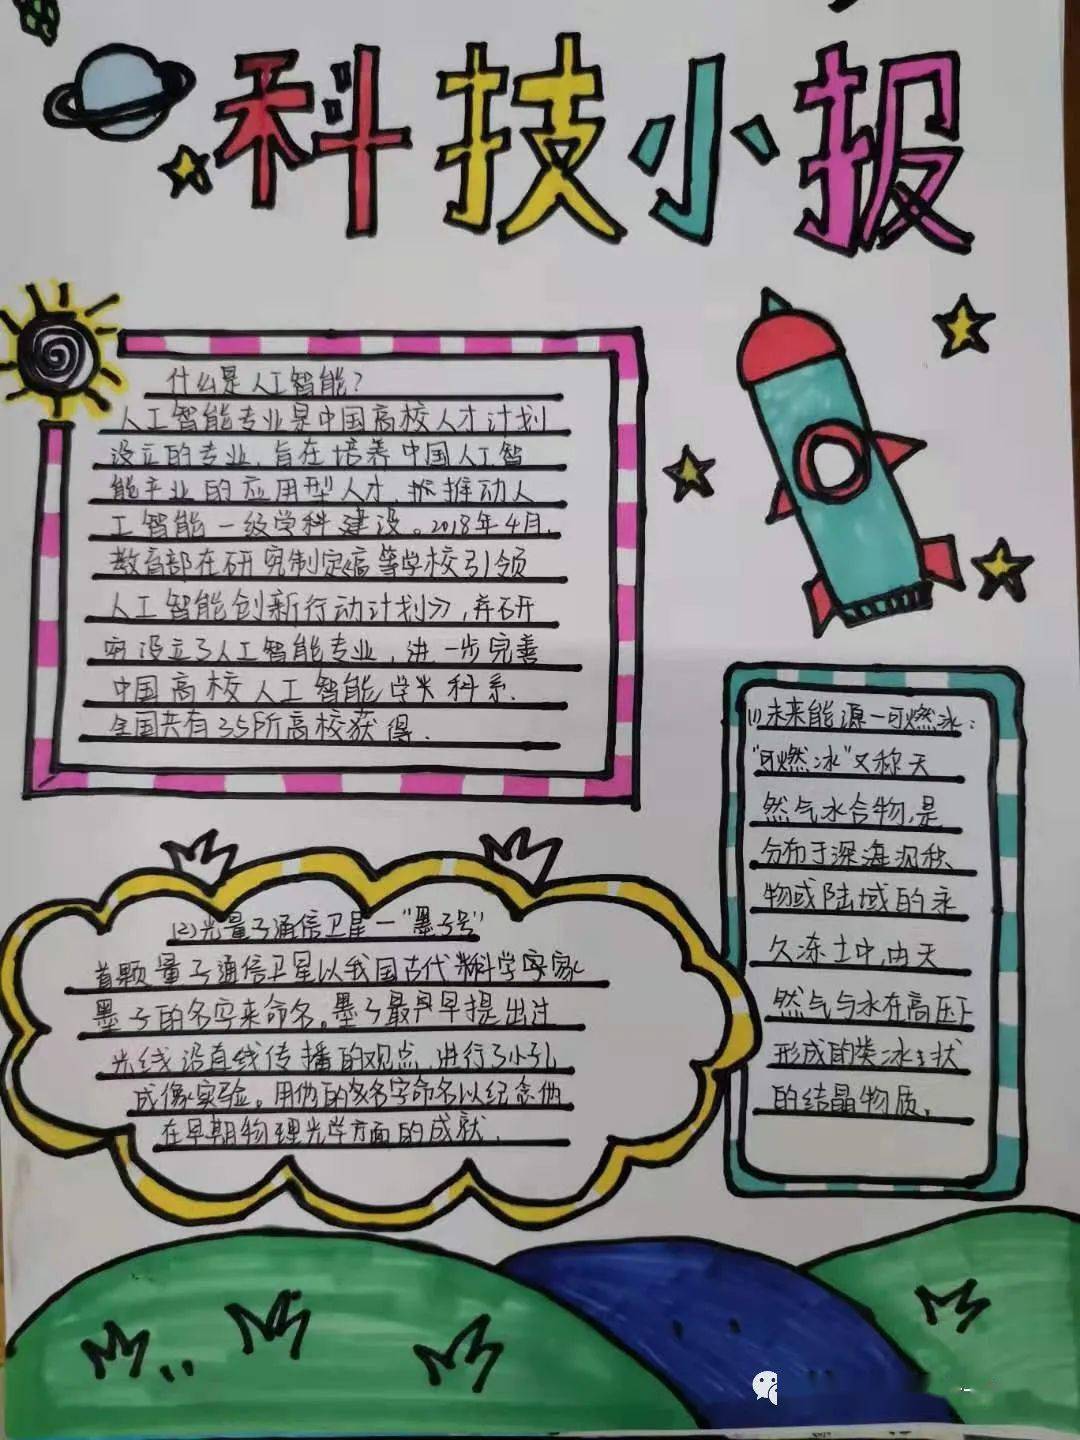 科技小报
什么是人工智能？
人工智能专业是中国高校人才计划
设立的专业，旨在培养中国人工智
能产业的应用型人才，推动人
工智能一级学科建设。2018年4月，
教育部在研究制定《高等学校引领
人工智能创新行动计划》，并研
究设立了人工智能专业，进一步完善
中国高校人工智能学科科系．
全国共有35所高校获得．
(1)未来能源一可燃冰：
"可燃冰"又称天
然气水合物，是
分布于深海沉积
物或陆域的永
久冻土中，由天
然气与水在高压下
形成的类冰状
的结晶物质．
(2)光量子通信卫星一"墨子号"
首颗量子通信卫星以我国古代科学家
墨子的名字来命名。墨子最早提出过
光线沿直线传播的观点，进行了小孔
成像实验。用他的名字命名以纪念他
在早期物理光学方面的成就．